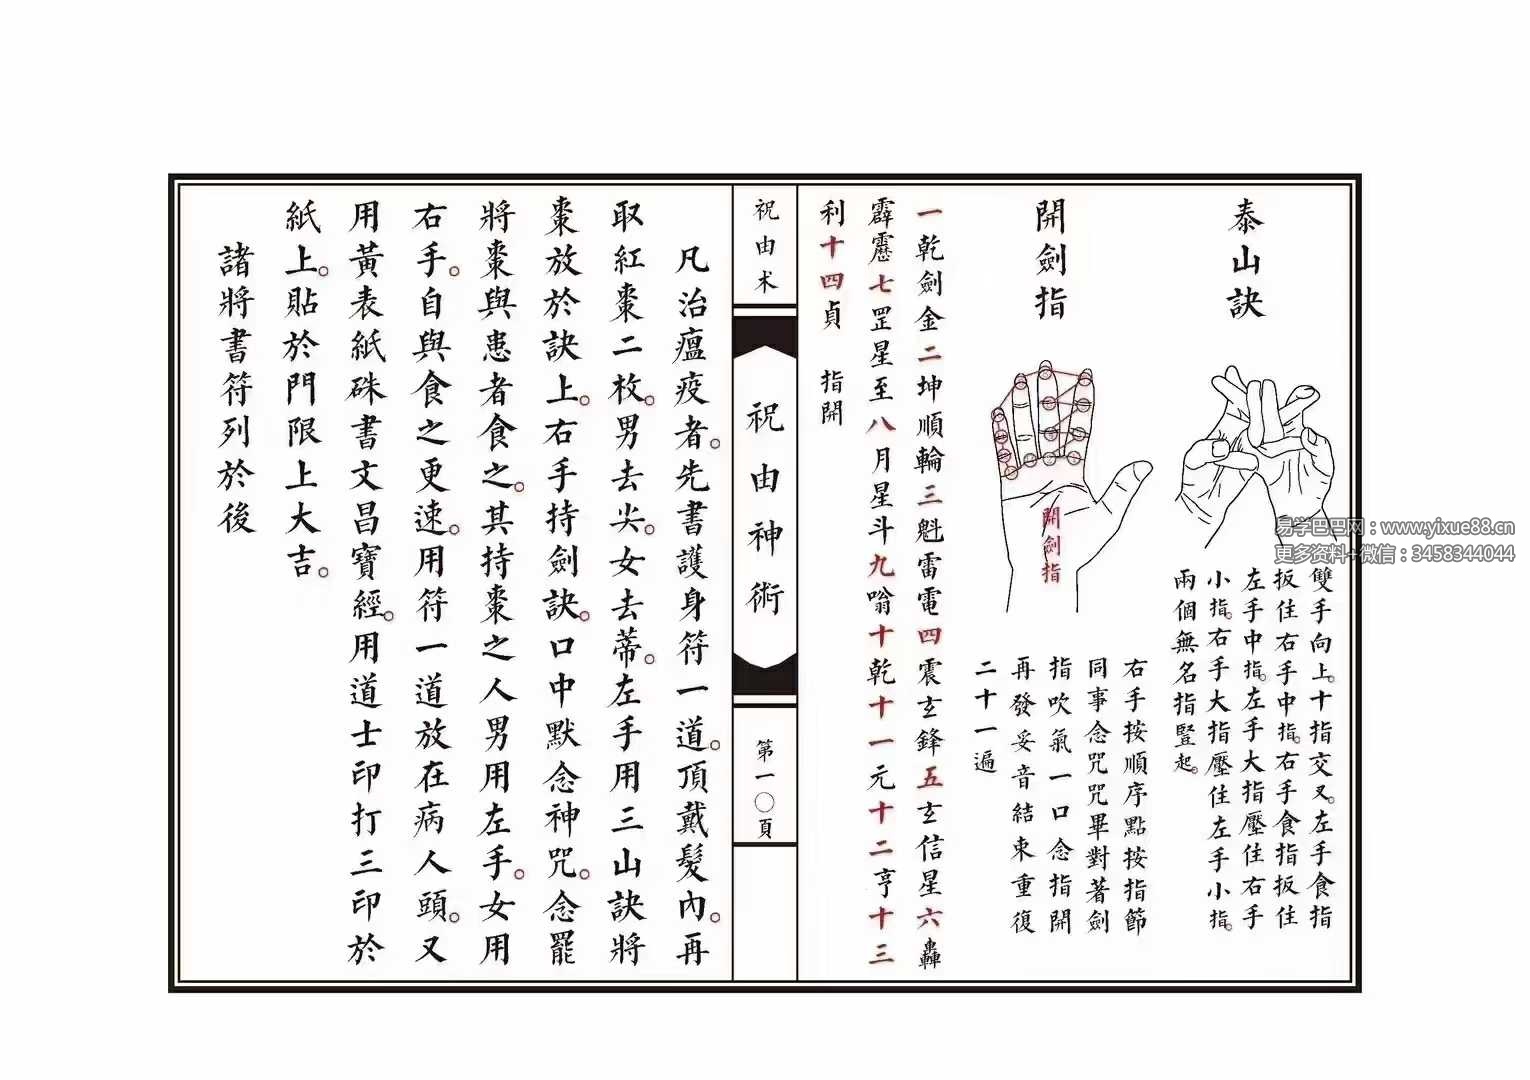 泰山訣
雙手向上。十指交叉。左手食指
扳住右手中指。右手食指扳住
左手中指。左手大指壓住右手
小指。右手大指壓住左手小指。
兩個無名指豎起。
開劍指
開劍指
右手按順序點按指節
同事念咒咒畢對著劍
指吹氣一口念指開
再發妥音結束重復
二十一遍
一乾劍金二坤順輪三魁雷電四震玄鋒五玄信星六轟
霹靂七罡星至八月星斗九嗡十乾十一元十二亨十三
利十四貞 指開
祝由术
祝由神術
第一〇頁
凡治瘟疫者。先書護身符一道。頂戴髮內。再
取紅棗二枚。男去尖。女去蒂。左手用三山訣將
棗放於訣上。右手持劍訣。口中默念神咒。念罷
將棗與患者食之。其持棗之人男用左手。女用
右手。自與食之更速。用符一道放在病人頭。又
用黃表紙硃書文昌寶經。用道士印打三印於
紙上。貼於門限上大吉。
諸將書符列於後
易学巴巴网：www.yixue88.cn
更多资料+微信：3458344044